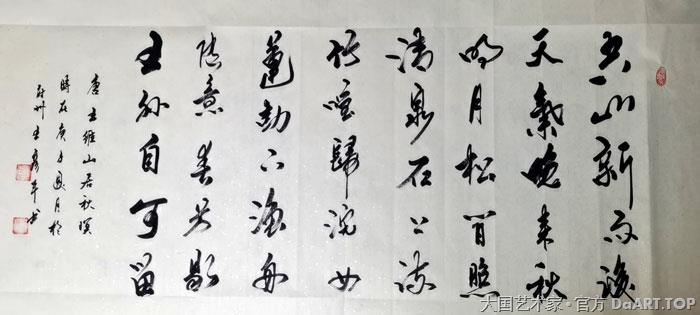 空山新雨後
天氣晚來秋
明月松間照
清泉石上流
竹喧歸浣女
蓮動下漁舟
随意春芳歇
王孙自可留
唐王維山居秋暝
時在庚子夏月於
蘇州
大国艺术家·官方 DaART.TOP